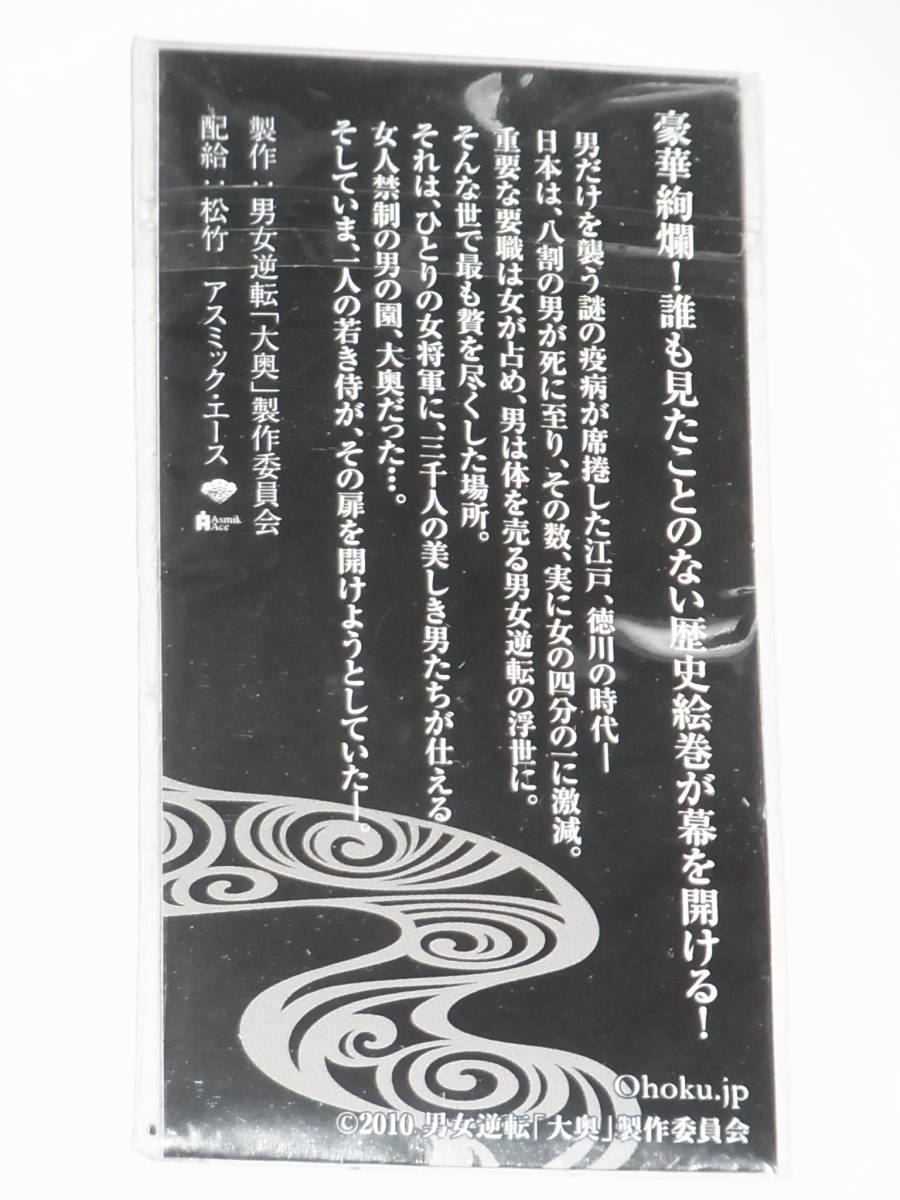 豪華絢爛！誰も見たことのない歴史絵巻が幕を開ける！
男だけを襲う謎の疫病が席捲した江戸、徳川の時代―
日本は、八割の男が死に至り、その数、実に女の四分の一に激減。
重要な要職は女が占め、男は体を売る男女逆転の浮世に。
そんな世で最も贅を尽くした場所。
それは、ひとりの女将軍に、三千人の美しき男たちが仕える
女人禁制の男の園、大奥だった…。
そしていま、一人の若き侍が、その扉を開けようとしていた―。
製作：男女逆転「大奥」製作委員会
配給：松竹 アスミック・エース
Asmik
Ace
Ohoku.jp
©2010 男女逆転「大奥」製作委員会